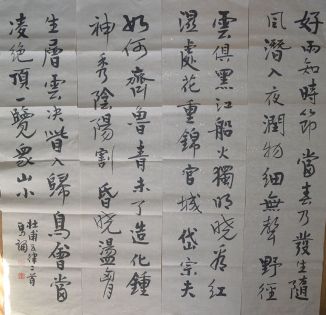 好雨知時節當春乃發生隨
風潛入夜潤物細無聲野徑
雲俱黑江船火獨明曉看紅
濕處花重錦官城岱宗夫
如何齊魯青未了造化鍾
神秀陰陽割昏曉盪胷
生層雲決眥入歸鳥會當
凌絕頂一覽眾山小
杜甫五律二首